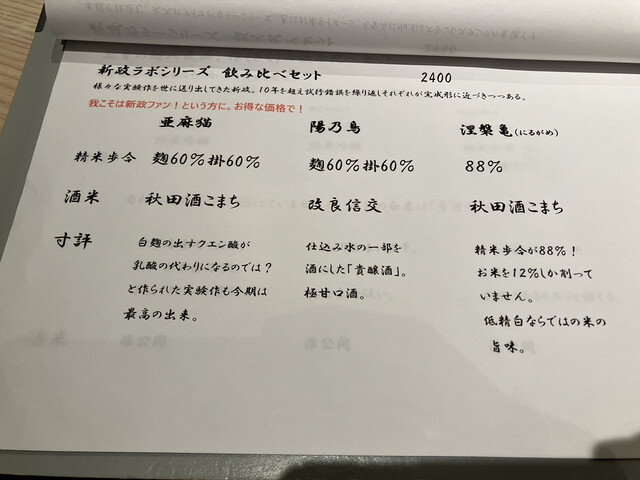 新政ラボシリーズ 飲み比べセット 2400
様々な実験作を世に送り出してきた新政。10年を超え試行錯誤を繰り返しそれぞれが完成形に近づきつつある。
我こそは新政ファン！という方に。お得な価格で！
亜麻猫 陽乃鳥 涅槃亀(にるがめ)
精米歩合 麹60%掛60% 麹60%掛60% 88%
酒米 秋田酒こまち 改良信交 秋田酒こまち
寸評
白麹の出すクエン酸が
乳酸の代わりになるのでは？
と作られた実験作も今期は
最高の出来。
仕込み水の一部を
酒にした「貴醸酒」。
極甘口酒。
精米歩合が88%！
お米を12%しか削って
いません。
低精白ならではの米の
旨味。